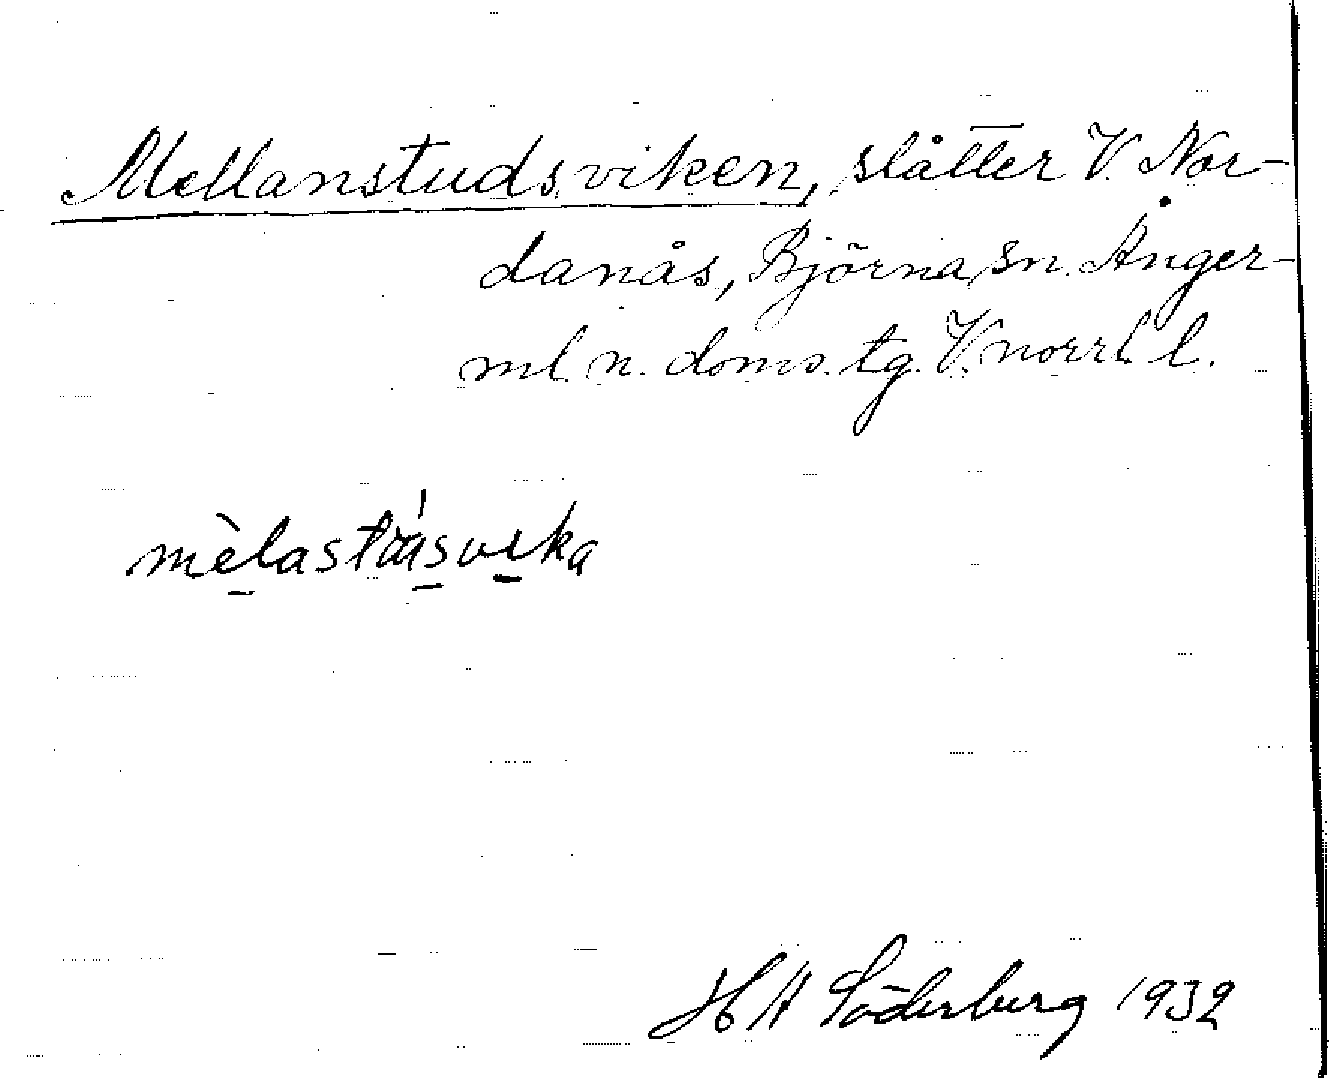 Mellanstudsviken, slåtter V. Nor-
danås, Björna sn. Ånger-
ml. n. doms. tg. V.norrl. l.
mèlastäásvika
H A Söderberg 1932